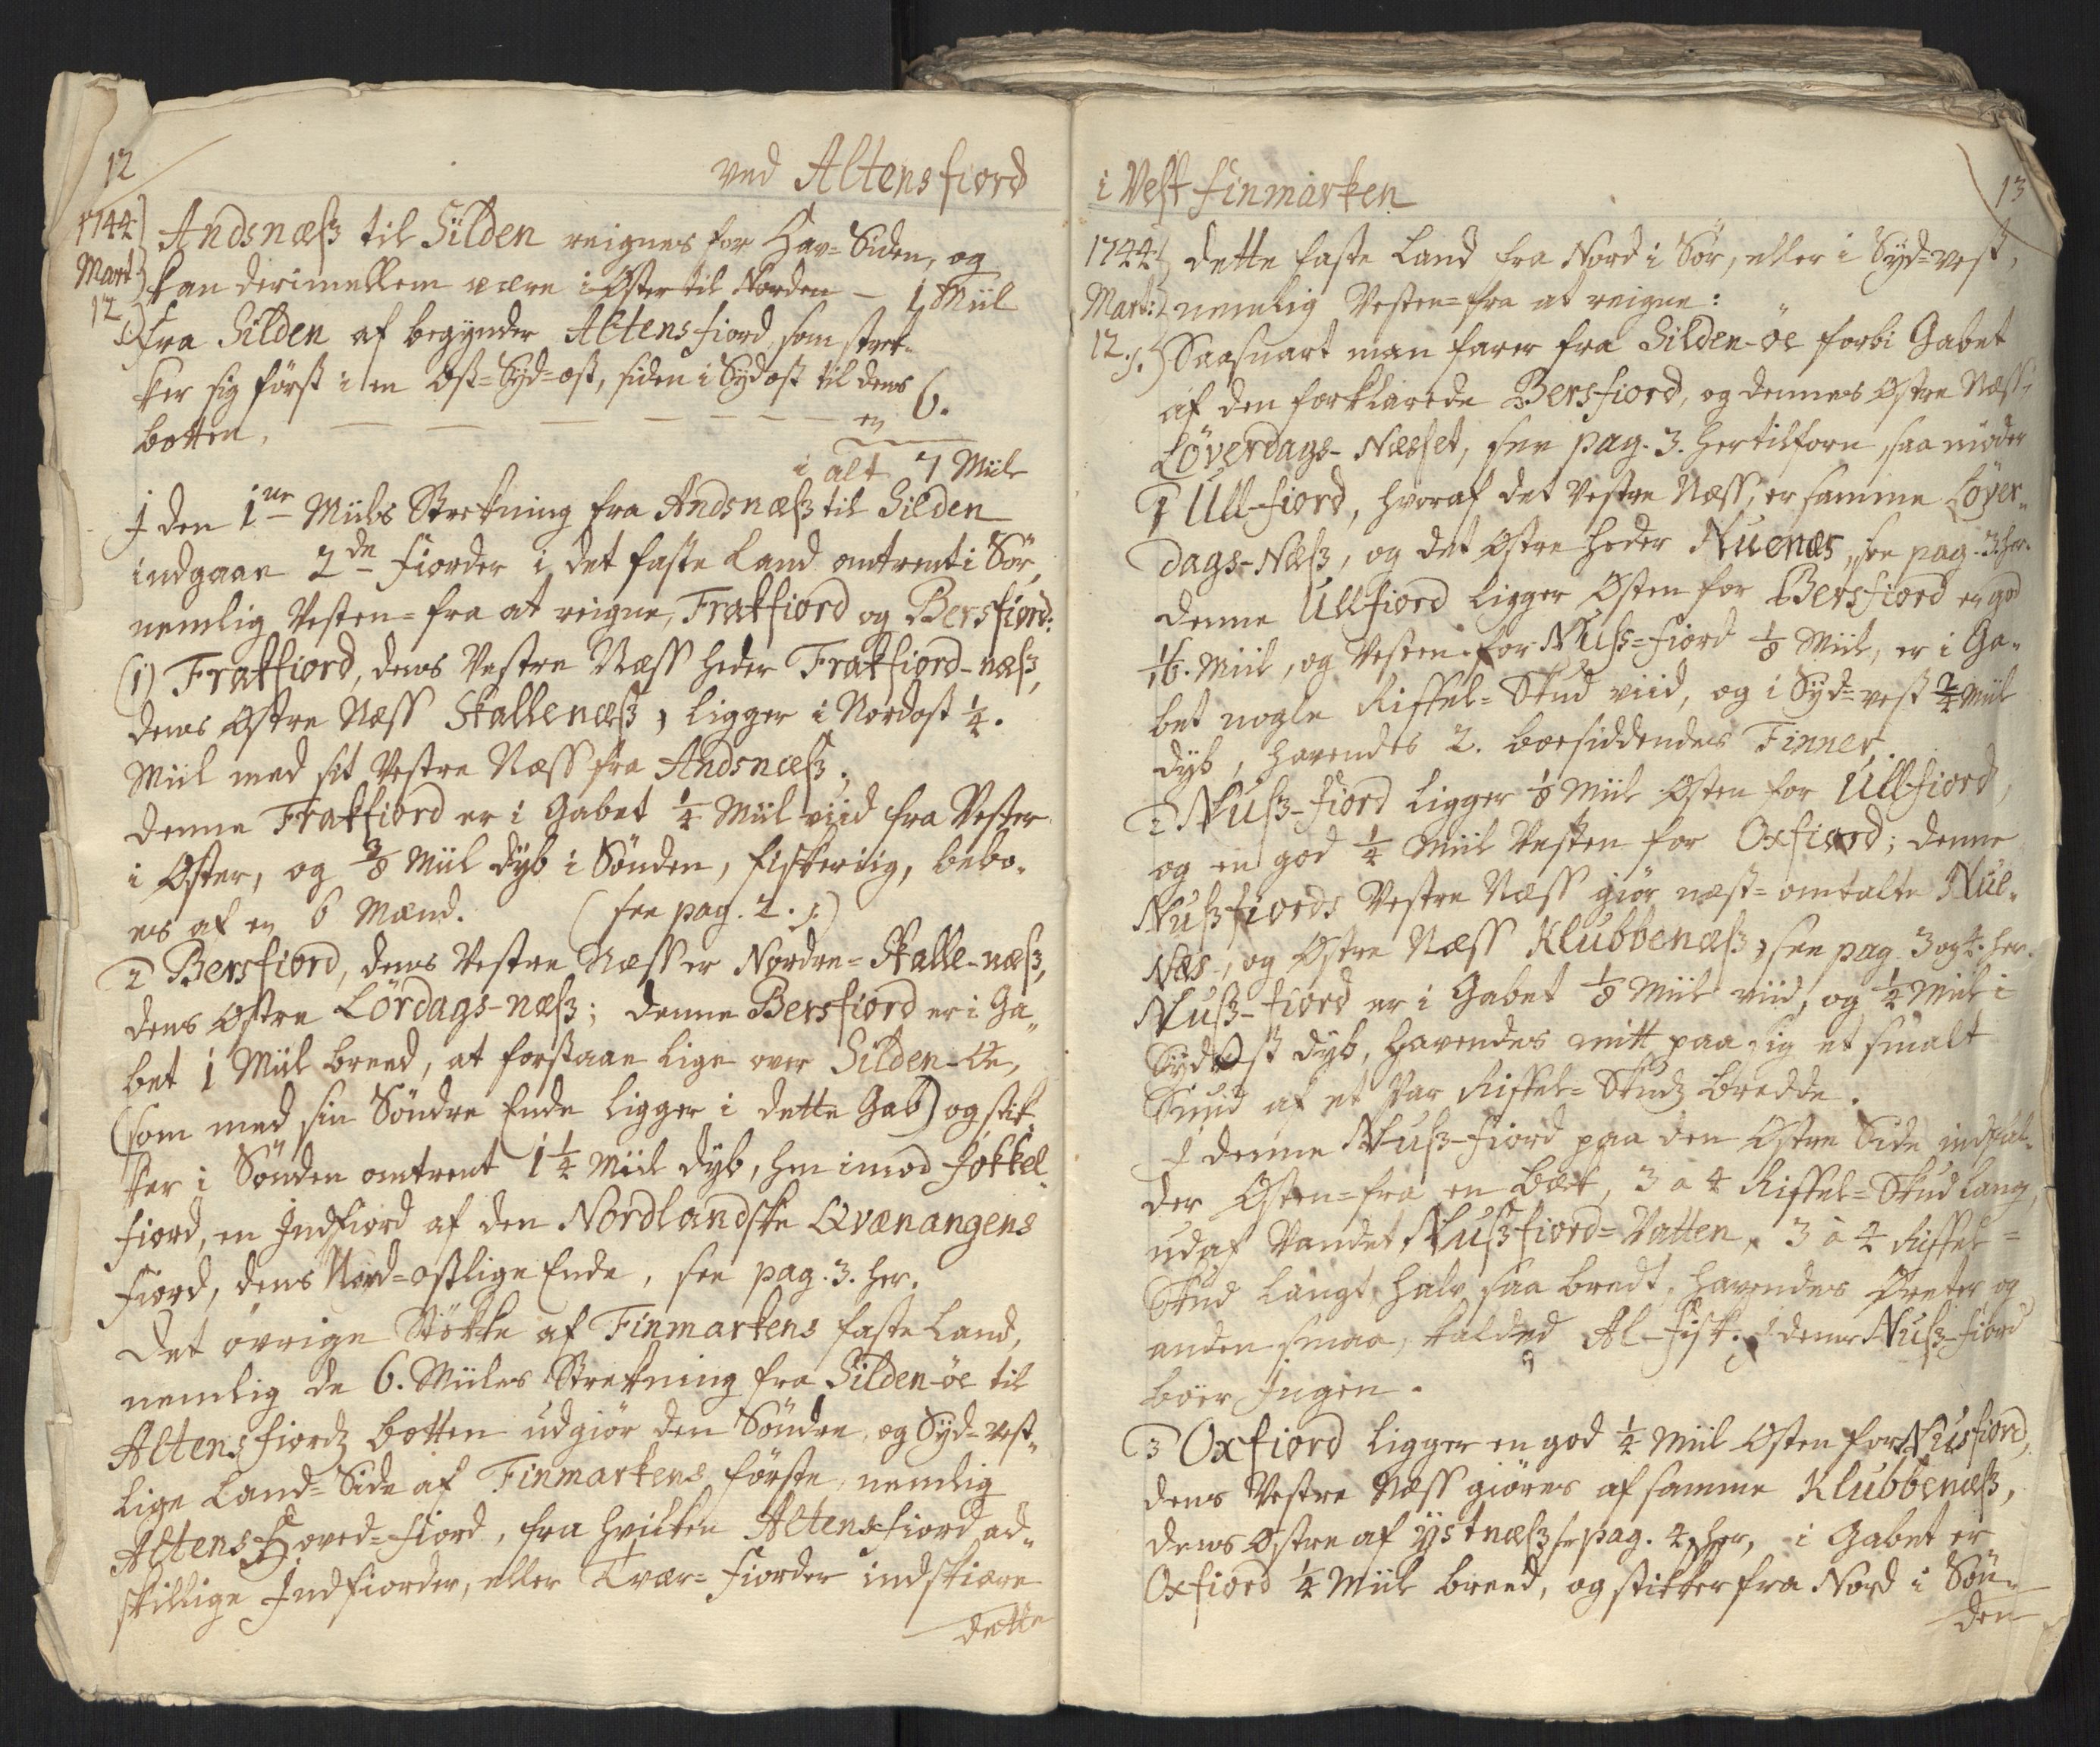 12
ved Altensfiord
1744.
Mart:
12
Andsnæss til Silden reignes for Hav-Siden, og
kan derimellem være i Oster til Norden — 1 Miil
Fra Silden af begynder Altensfiord, som stræk-
ker sig först i en Ost-Syd-ost, siden i Sydost til dens
botten, — — — — — en 6.
i alt 7 Miile
J den 1ne Miils Strekning fra Andsnæss til Silden
indgaae 2de Fiorder i det faste Land omtrent i Sør,
nemlig Vesten-fra at reigne, Frakfiord og Bersfiord:
(1) Frakfiord, dens Vestre Næss heder Frakfiord-næss,
dens Ostre Næss Skallenæss, ligger i Nordost 1/4.
Miil med sit Vestre Næss fra Andsnæss;
denne Frakfiord er i Gabet 1/4 Miil viid fra Vester
i Oster, og 3/8 Miil dyb i Sönden, fiskeriig, bebo-
es af en 6 Mænd. (see pag. 2.)
2 Bersfiord, dens Vestre Næss er Nordre-Skalle-næss,
dens Ostre Lördags-næss; denne Bersfiord er i Ga-
bet 1 Miil breed, at forstaae lige over Silden-Öe,
(som med sin Söndre Ende ligger i dette Gab) og stik-
ker i Sönden omtrent 1 1/4 Miil dyb, hen imod Jökkel-
fiord, en Indfiord af den Nordlandske Qvænangens
Fiord, dens Nord-ostlige Ende, see pag. 3. her.
Det övrige Stökke af Finmarkens faste Land,
nemlig de 6. Miiles Strekning fra Silden-öe til
Altensfiords botten udgiör den Söndre og Syd-vest-
lige Land-Side af Finmarkens förste, nemlig
Altens Hoved-fiord, fra hvilken Altensfiord ad-
skillige Indfiorder, eller Tvær-Fiorder indskiære
dette
i Vest Finmarken
13
1744.
Mart:
12.
dette faste Land fra Nord i Sør, eller i Syd-vest,
nemlig Vesten-fra at reigne:
Saasnart man farer fra Silden-öe forbi Gabet
af den forklarede Bersfiord, og dennes Ostre Næss
Löverdags-Næsset, see pag. 3. hertilforn, saa möder
1 Ull-fiord, hvoraf det Vestre Næss, er samme Löver-
dags-Næss, og det Ostre heder Nuenæs, see pag. 3. her.
denne Ullfiord ligger Østen for Bersfiord en god
Miil, og Vesten for Nuss-fiord 1/8 Miil, er i Ga-
bet nogle Riffel-Skud viid, og i Syd-vest 2/4 Miil
dyb, havendes 2. boesiddendes Finner.
2 Nuss-fiord ligger 1/8 Miil Østen for Ullfiord,
og en god 1/4 Miil Vesten for Oxfiord; denne
Nussfiords Vestre Næss giör næst-omtalte Nue-
Næs, og Østre Næss Klubbenæss, see pag 3 og 4. her.
Nuss-fiord er i Gabet 1/8 Miil viid, og 1/2 Miil i
Sydost dyb, havendes mitt paa sig et smalt
Sund af et Par Riffel-Skuds bredde.
J denne Nuss-fiord paa den Østre Side indfal-
der Østen-fra en Bæk, 3 a 4 Riffel-Skud lang,
ud af Vandet Nussfiord-Vatten, 3 à 4 Riffel-
Skud langt halv saa bredt, havendes Örreter og
anden smaa, kalded Al-fisk. J denne Nuss-fiord
böer Ingen.
3 Oxfiord ligger en god 1/4 Miil Østen for Nusfiord,
dens Vestre Næss giöres af samme Klubbenæss,
dens Ostre af Ystnæss see pag. 4 her, i Gabet er
Oxfiord 1/4 Miil breed, og stikker fra Nord i Sön-
den